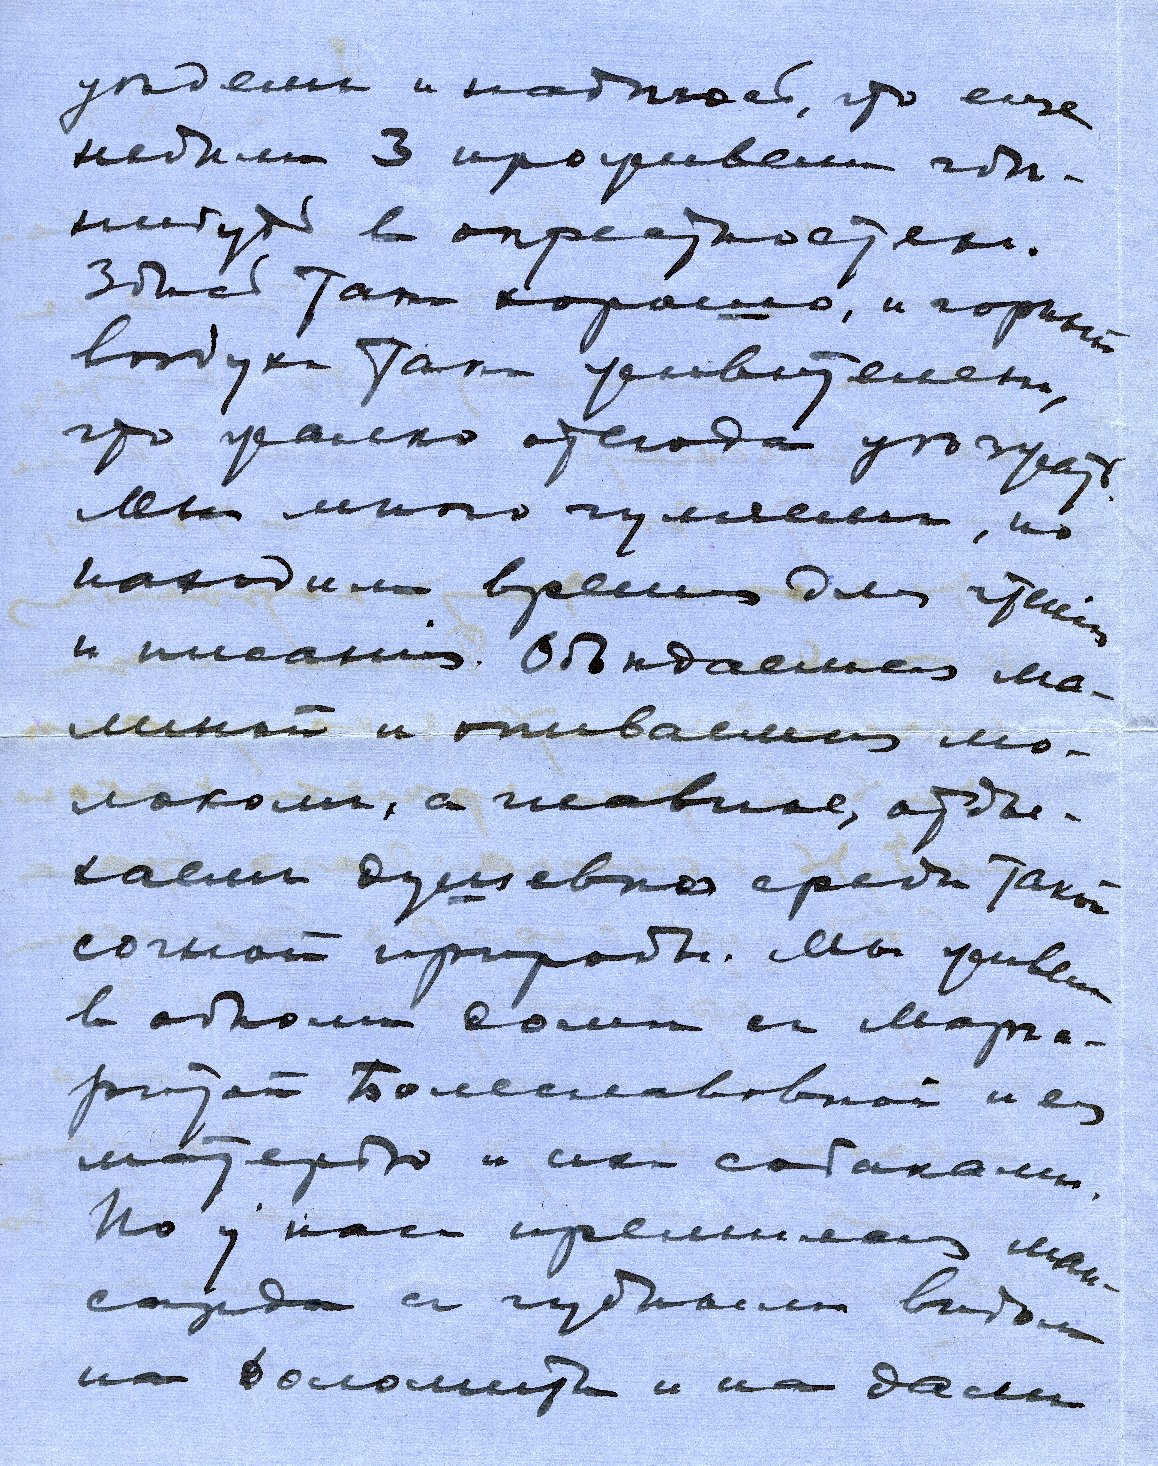 уѣдемъ и надѣюсь, что еще
недѣли 3 проживемъ гдѣ-
нибудь въ окрестностяхъ.
Здѣсь такъ хорошо, и горный
воздухъ такъ живителенъ,
что жалко отсюда уѣзжать.
Мы много гуляемъ, но
находимъ время для чтенія
и писанія. Объѣдаемся ма-
линой и опиваемся мо-
локомъ, а главное, отды-
хаемъ душевно среди такой
сочной природы. Мы живемъ
въ одномъ домѣ съ Марга-
ритой Болеславовной и ея
матерью и ихъ собаками.
Но у насъ премилая ман-
сарда съ чуднымъ видомъ
на Доломиты и на дали